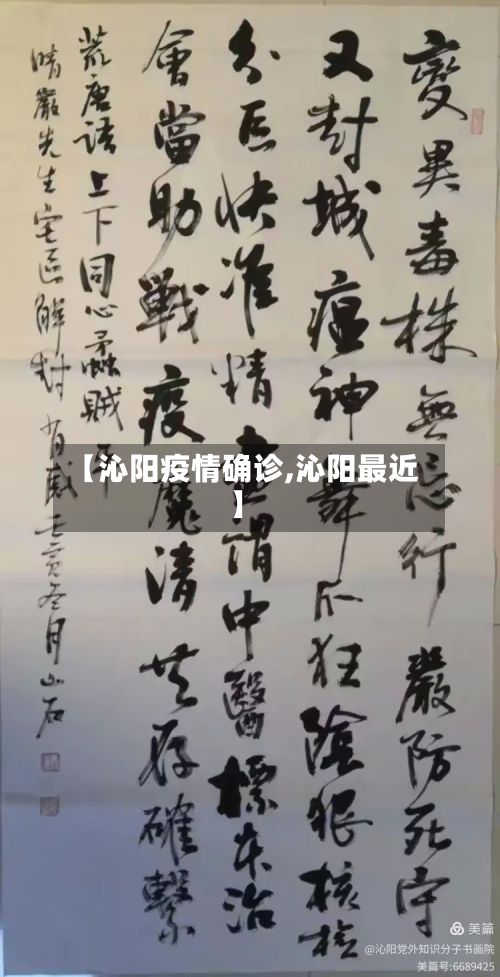 變異毒株無忌行嚴防死守
又封城瘟神舞爪狂陰狠核檢
分区快准精謂中醫標本治
會當助戰疫魔清共存確繫
荒唐語上下同心蟊賊
晴巖先生區解封有感壬寅冬月山石
【沁阳疫情确诊,沁阳最近
】
美篇
@沁阳党外知识分子书画院
美篇号:6689425